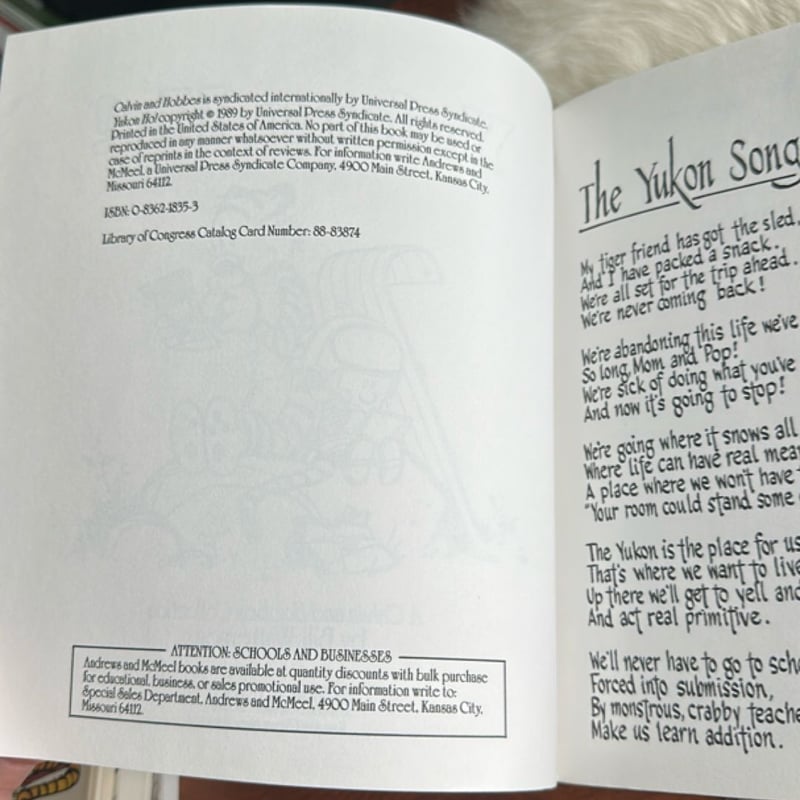 Calvin and Hobbes is syndicated internationally by Universal Press Syndicate.
Yukon Ho! copyright © 1989 by Universal Press Syndicate. All rights reserved.
Printed in the United States of America. No part of this book may be used or
reproduced in any manner whatsoever without written permission except in the
case of reprints in the context of reviews. For information write Andrews and
McMeel, a Universal Press Syndicate Company, 4900 Main Street, Kansas City,
Missouri 64112.
ISBN: 0-8362-1835-3
Library of Congress Catalog Card Number: 88-83874
ATTENTION: SCHOOLS AND BUSINESSES
Andrews and McMeel books are available at quantity discounts with bulk purchase
for educational, business, or sales promotional use. For information write to:
Special Sales Department, Andrews and McMeel, 4900 Main Street, Kansas City,
Missouri 64112.
The Yukon Song
My tiger friend has got the sled,
And I have packed a snack.
We're all set for the trip ahead.
We're never coming back!
We're abandoning this life we've
So long, Mom and Pop!
We're sick of doing what you've
And now it's going to stop!
We're going where it snows all
Where life can have real
A place where we won't have
"Your room could stand some
The Yukon is the place for us
That's where we want to live
Up there we'll get to yell and
And act real primitive.
We'll never have to go to
Forced into submission,
By monstrous, crabby
Make us learn addition.